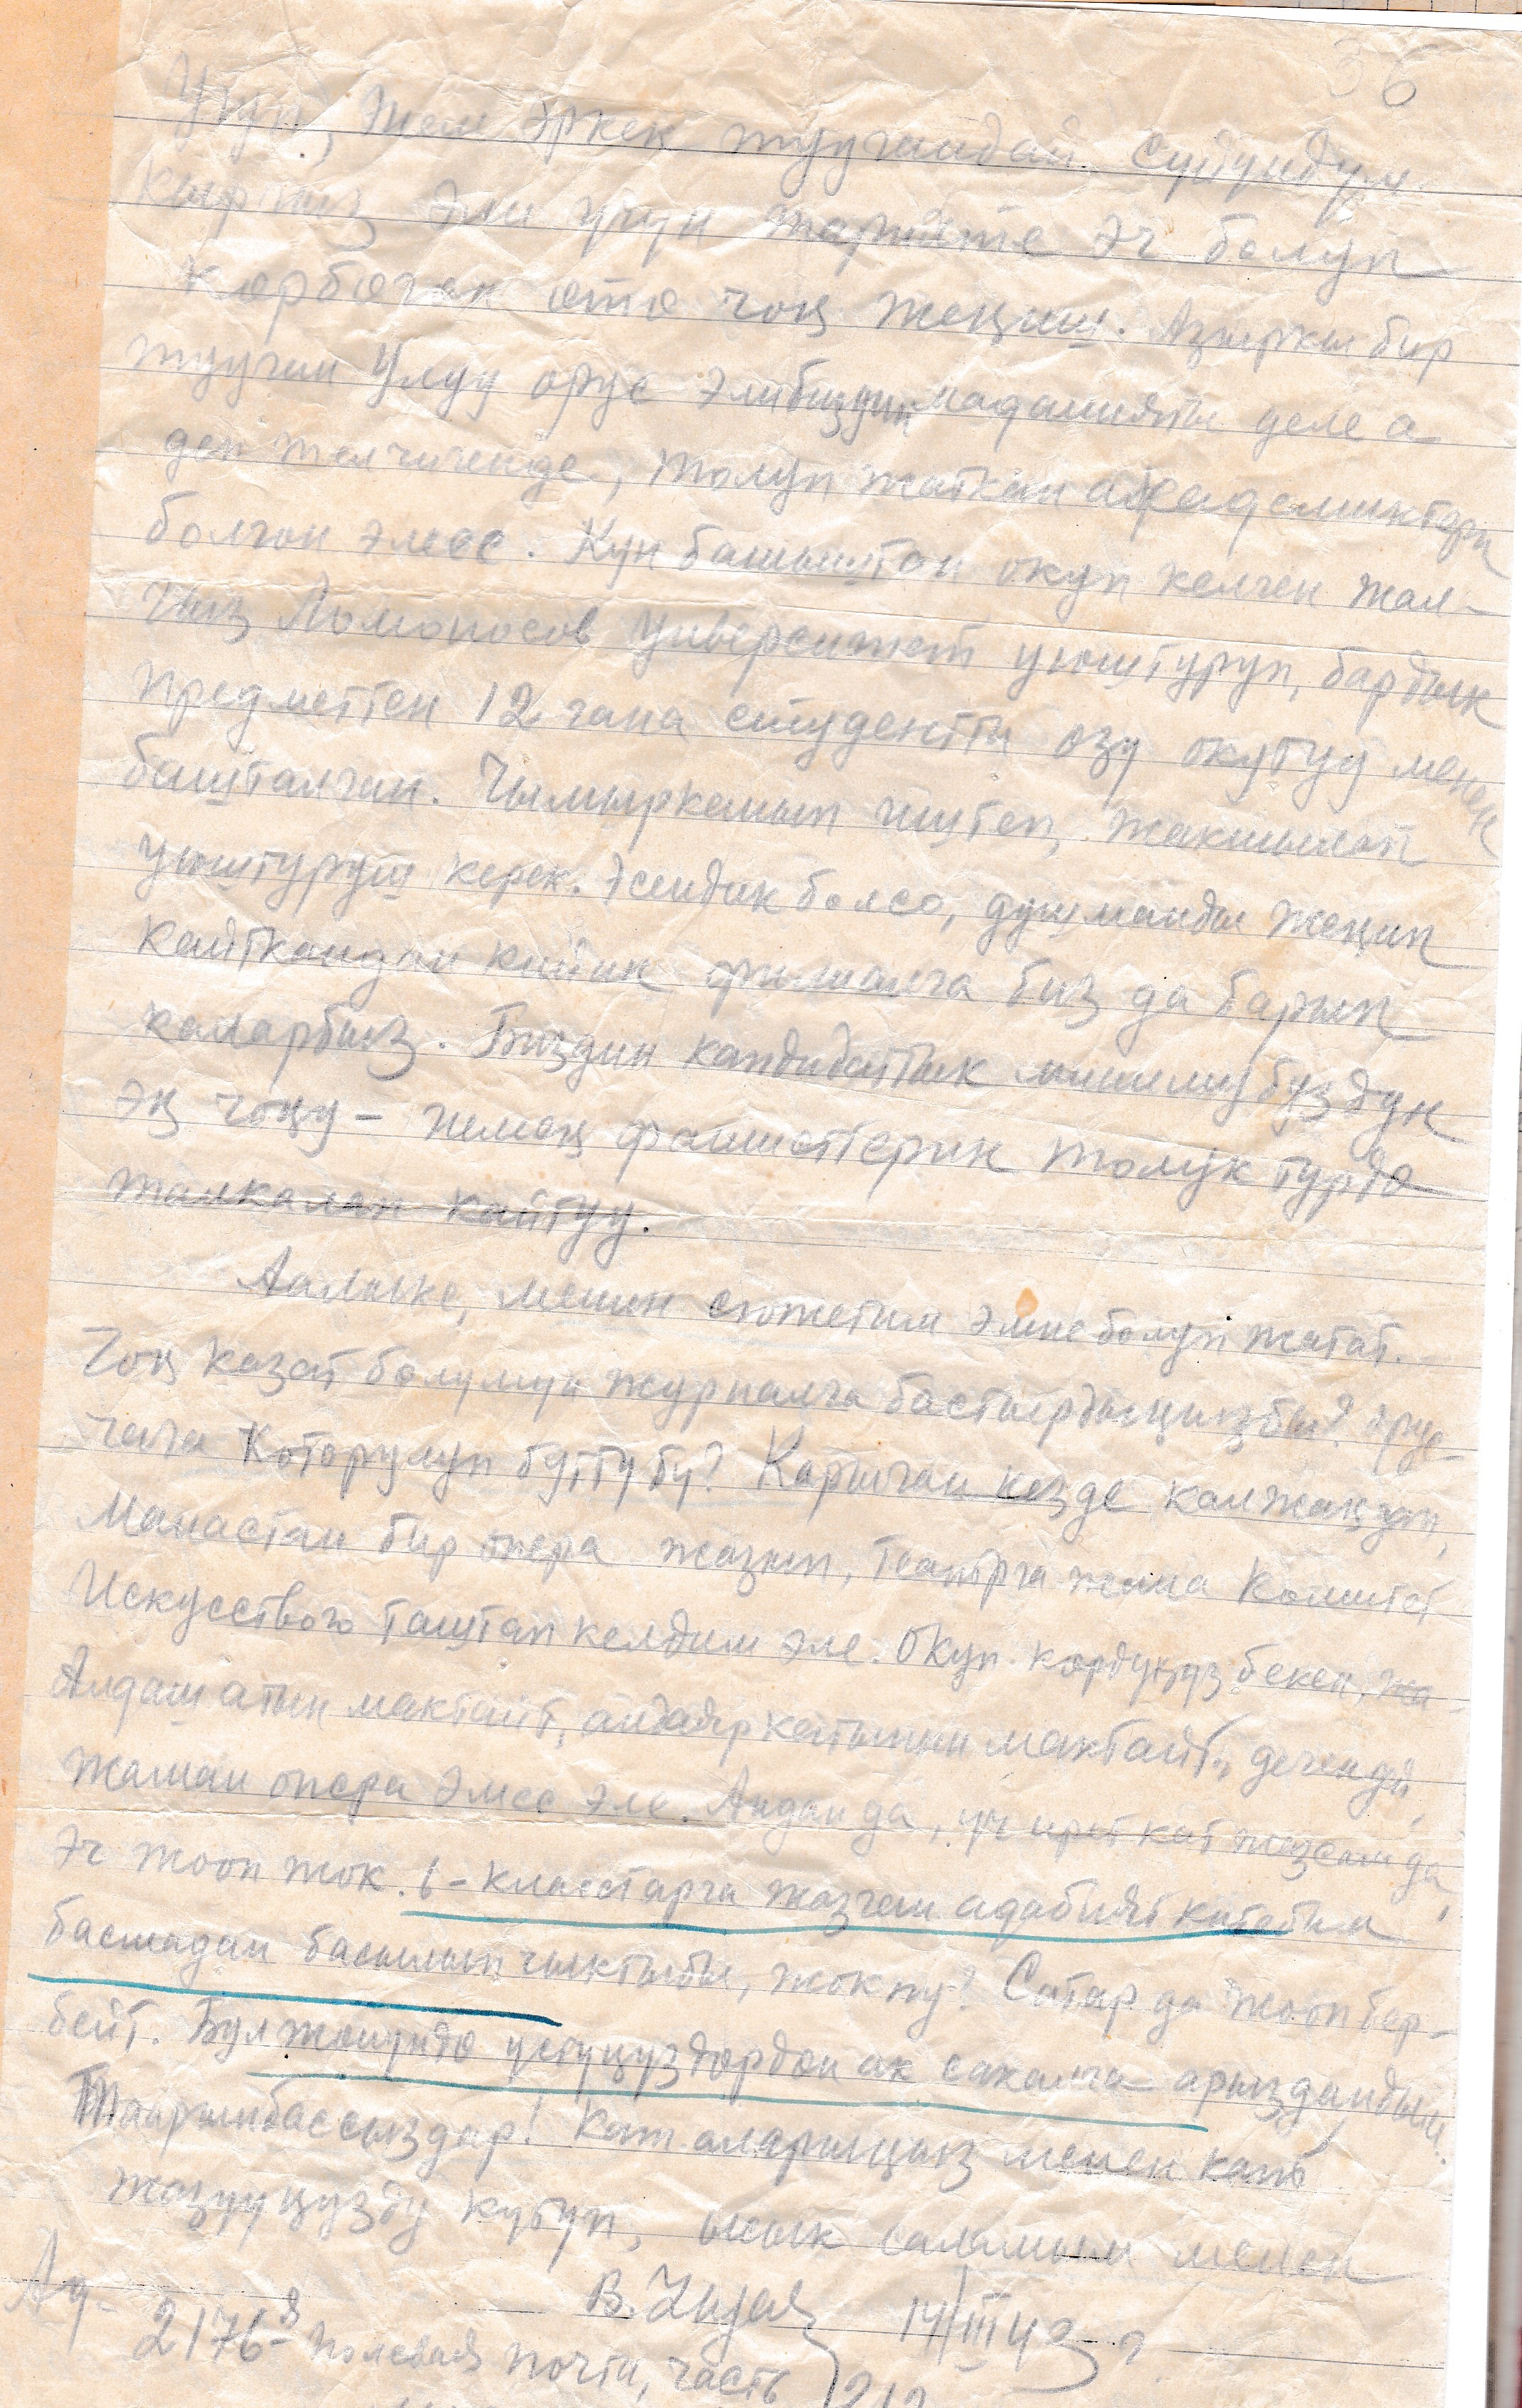 36
Угуп, жем эркек туугандай, сүйүндүм.
Кыргыз эли үчүн тарыхте эч болуп
көрбөгөн өтө чоң жеңиш. Азыркы бир
тууган Улуу орус элибиздин маданияты деле а
деп келгиченде, толуп жаткан академиктери
болгон эмес. Күн батыштан окуп келген жал-
гыз Ломоносов университет уюштуруп, бардык
предметтен 12 гана студентти өзү окутуу менен
башталган. Чымыркемып иштеп, жакшылап
уюштуруш керек. Эсендик болсо, душманды жеңип
кайткандан кийин филиалга биз да барып
каларбыз. Биздин кандидаттык минимубуздун
эң чоңу – немец фашисттерин толук түрдө
талкалап кайтуу.
Аалыке, менин сюжетим эмне болуп жатат.
Чоң казат бөлүмүн журналга бастырдыңызбы? орус-
чага которулуп бүттүбү? Карыган кезде калжаңдап,
Манастан бир опера жазып, театрга жана Комитет
Искусствого таштап келдим эле. Окуп көрдүңүз бекен, жа-
Алдаш атын мактайт, андаяр катынын мактайт, дегендей,
жаман опера эмес эле. Андан да, үч ирет кат жазсам да,
эч жооп жок. 6-класстарга жазган адабият китебим
басмадан басылып чыктыбы, жокпу? Сатар да жооп бер-
бейт. Бул жөнүндө үстүңүздөрдөн ак сакалга арыздандым.
Таарынбассыздар! Кат аларыңыз менен кат
жазууңузду күтүп, ысык саламым менен
14/III 43 г.
Ад- 2176-я полевая почта, часть 212